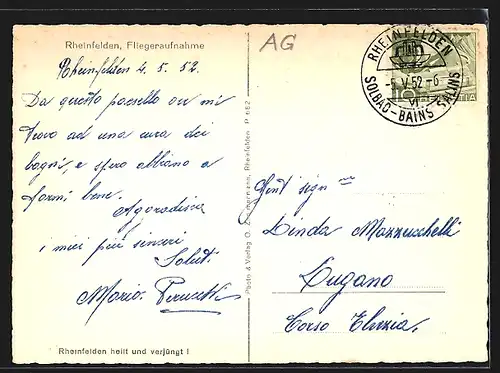 Rheinfelden, Fliegeraufnahme
AG
Rheinfelden 4. 5. 52.
Da questo paesello ove mi
trovo ad una cura dei
bagni, e spero abbiano a
farmi bene.
Aggradisca
i miei più sinceri
Saluti
Mario.
Rheinfelden heilt und verjüngt !
Photo & Verlag O. Zimmermann, Rheinfelden P 682
RHEINFELDEN
-5.V.52-6
VI
SOLBAD-BAINS SALINS
10
HELVETIA
Gent sign na
Linda Mazzucchelli
Lugano
Corso Elvezia.